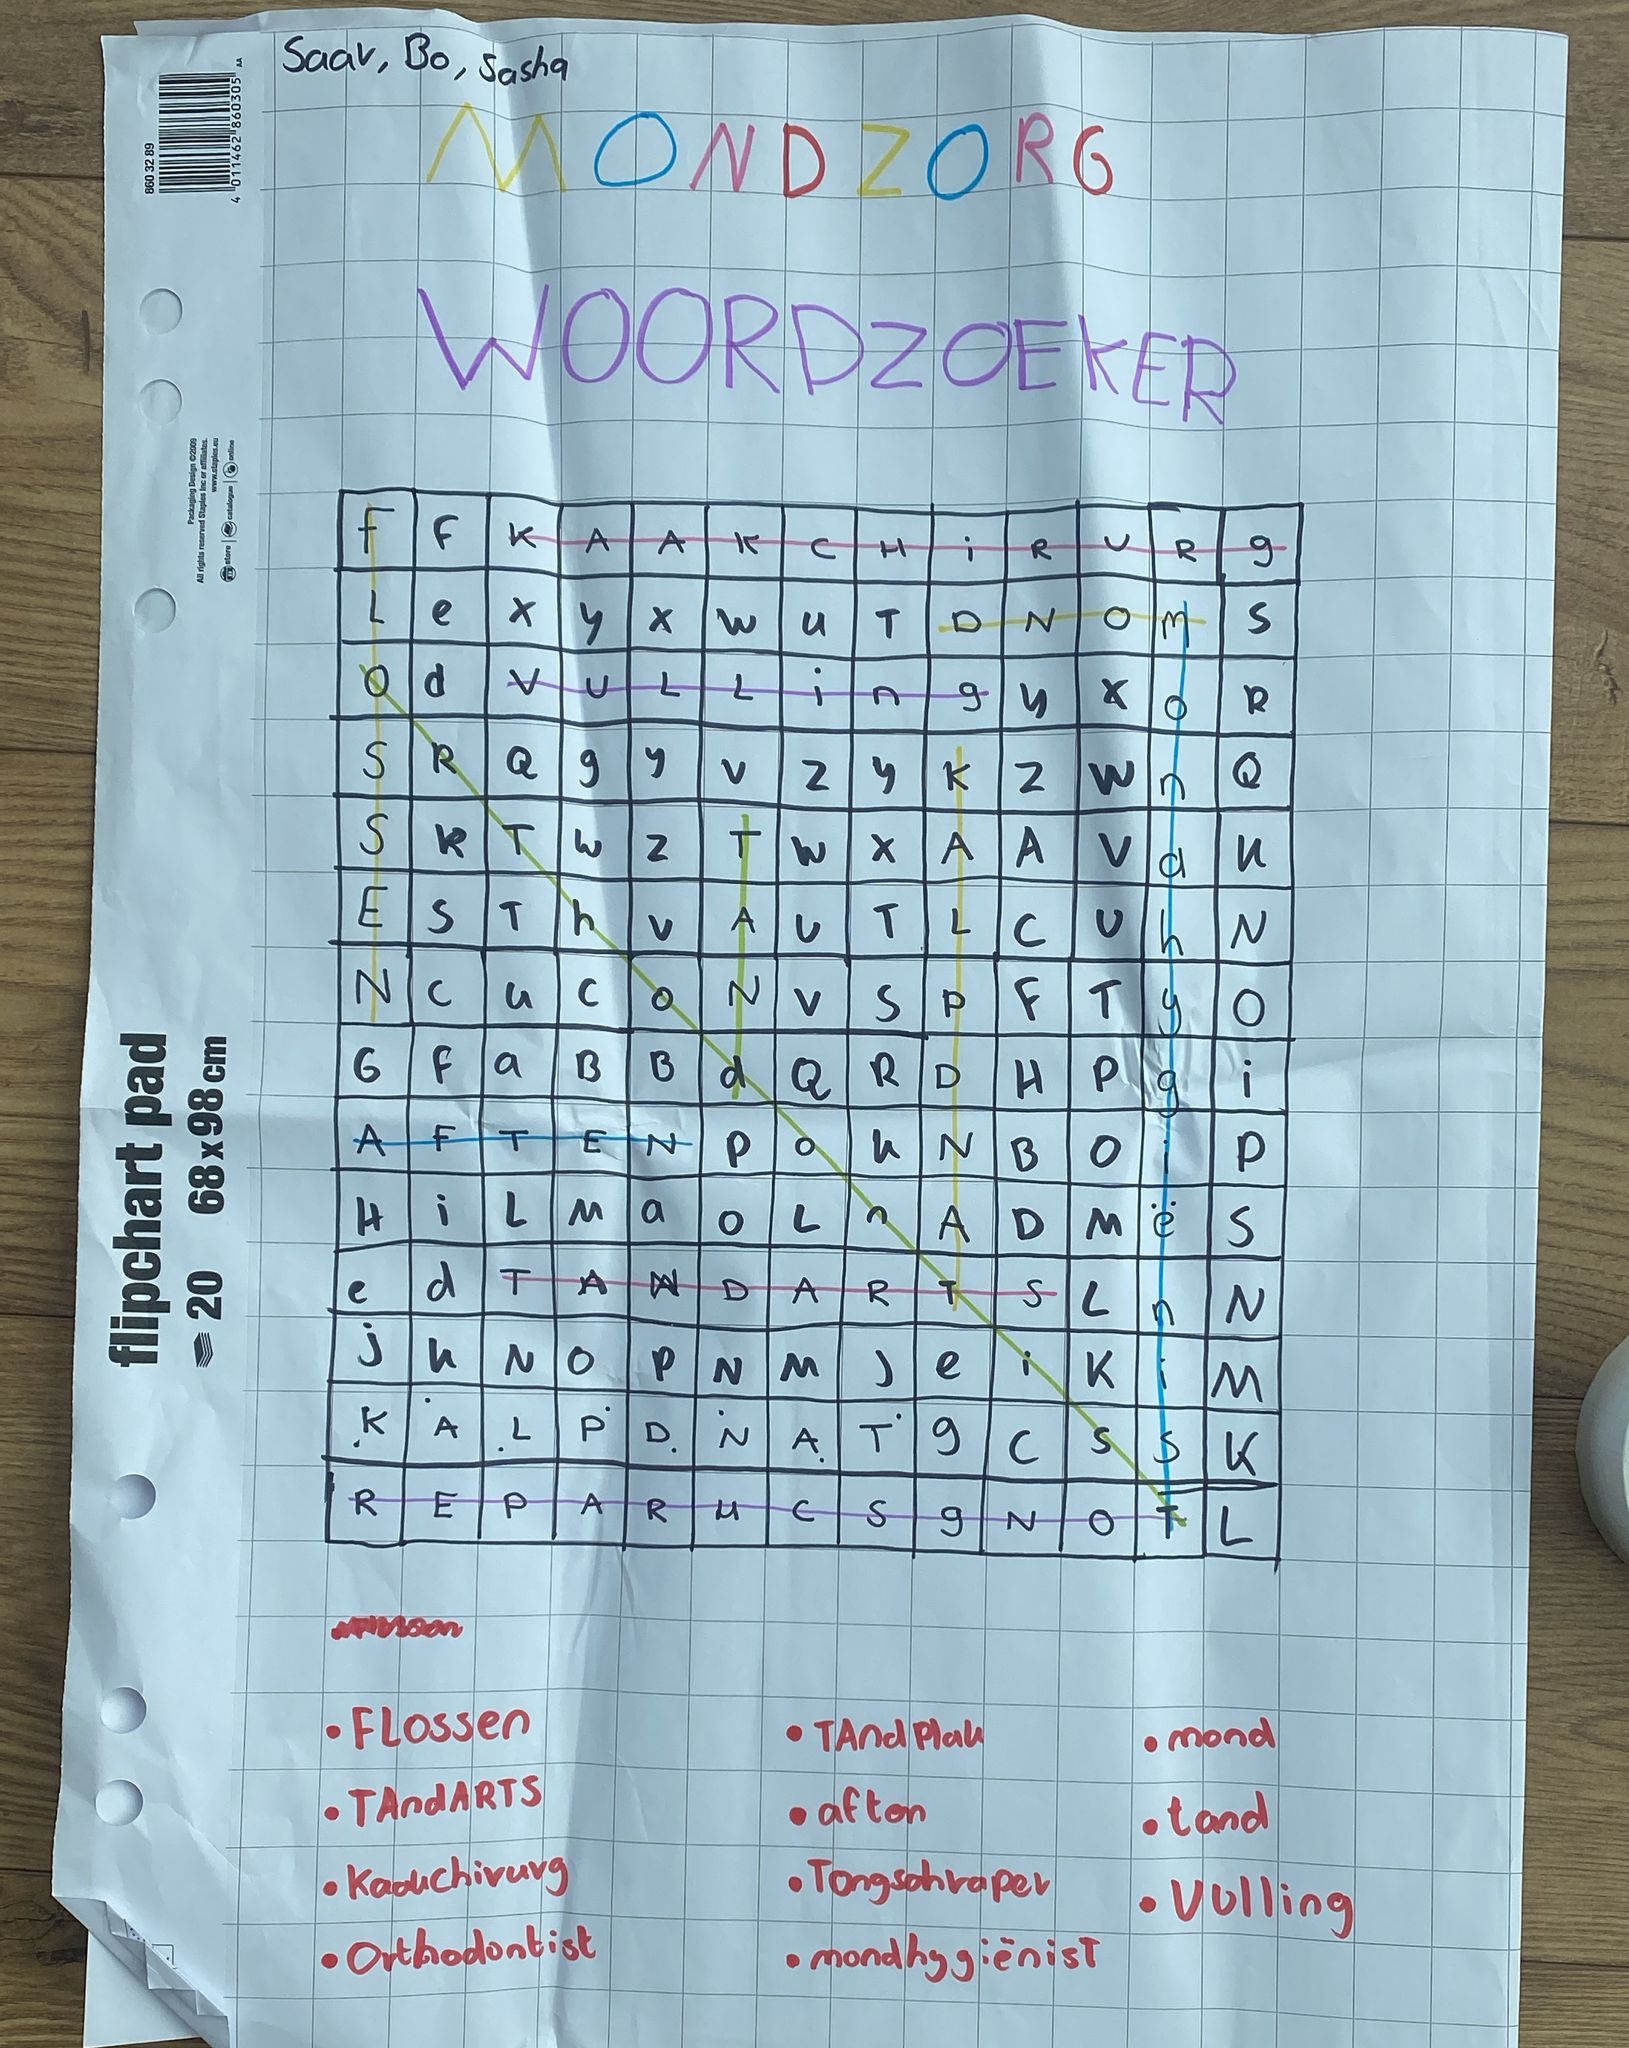 Saar, Bo, Sasha
MONDZORG
WOORDZOEKER
F F K A A K C H i R U R g
L e x y x w u T D N O m S
O d V U L L i n g y x o R
S R Q g y v z y K z W n Q
S K T w z T w x A A V d u
E S T h v A U T L C U h N
N C u C o N V S P F T y O
G F a B B d Q R D H P g i
A F T E N P o k N B O i P
H i L M a O L n A D M ë S
e d T A N D A R T S L n N
j k N O P N M J e i K i M
K A L P D N A T g C S s K
R E P A R H C S g N O T L
• FLOSSEN
• TAndPlak
• mond
• TAndARTS
• aften
• tand
• Kaakchirurg
• Tongschraper
• Vulling
• Orthodontist
• mondhygiënisT
860 32 89
4 011462 860305
AA
Packaging Design ©2009
All rights reserved Staples Inc or affiliates.
www.staples.eu
store | catalogue | online
flipchart pad
20 68 x 98 cm